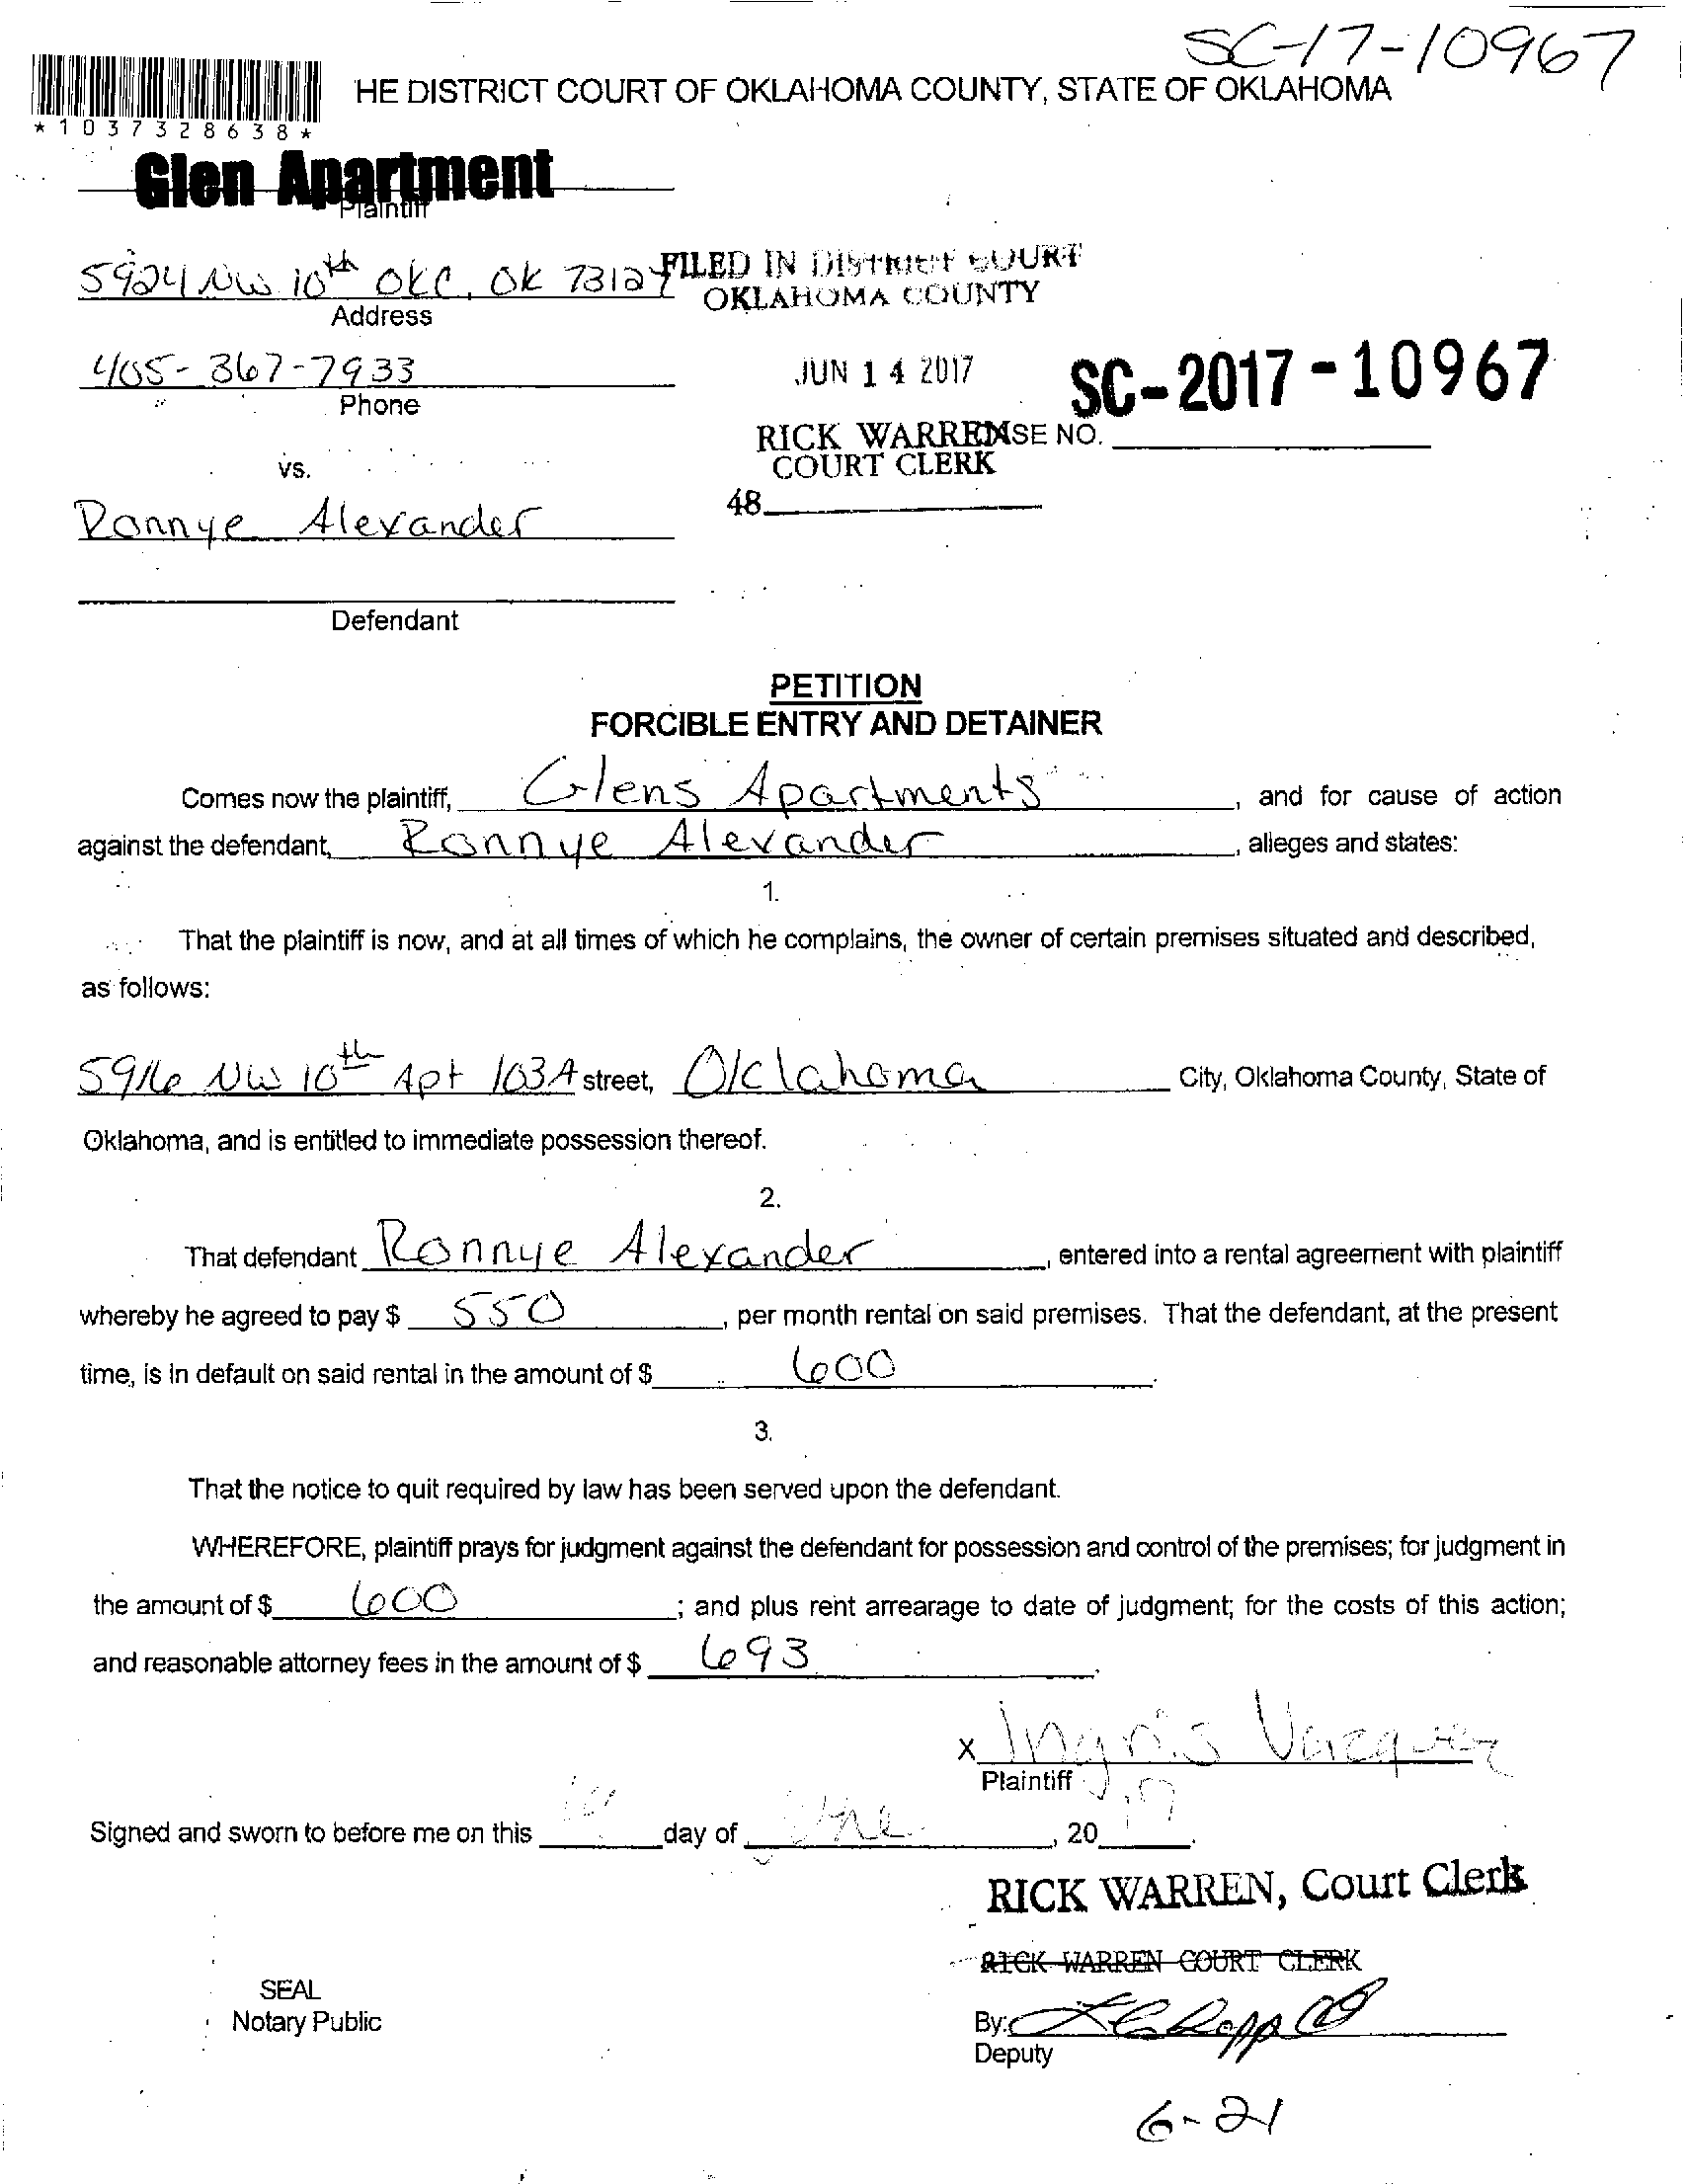 SC-17-10967
HE DISTRICT COURT OF OKLAHOMA COUNTY, STATE OF OKLAHOMA
*1037328638*
Glen Apartment
Plaintiff
5924 NW 10th OKC, OK 73127
Address
FILED IN DISTRICT COURT
OKLAHOMA COUNTY
405-367-7933
Phone
JUN 14 2017
SC-2017-10967
RICK WARREN
COURT CLERK
SE NO.
48
vs.
Ronnye Alexander
Defendant
PETITION
FORCIBLE ENTRY AND DETAINER
Comes now the plaintiff, Glens Apartments, and for cause of action
against the defendant, Ronnye Alexander, alleges and states:
1.
That the plaintiff is now, and at all times of which he complains, the owner of certain premises situated and described,
as follows:
5916 NW 10th Apt 103A street, Oklahoma City, Oklahoma County, State of
Oklahoma, and is entitled to immediate possession thereof.
2.
That defendant Ronnye Alexander, entered into a rental agreement with plaintiff
whereby he agreed to pay $ 550, per month rental on said premises. That the defendant, at the present
time, is in default on said rental in the amount of $ 600.
3.
That the notice to quit required by law has been served upon the defendant.
WHEREFORE, plaintiff prays for judgment against the defendant for possession and control of the premises; for judgment in
the amount of $ 600; and plus rent arrearage to date of judgment; for the costs of this action;
and reasonable attorney fees in the amount of $ 693.
X Ingris Vazquez
Plaintiff
Signed and sworn to before me on this day of , 20 17.
RICK WARREN, Court Clerk
RICK WARREN COURT CLERK
SEAL
Notary Public
By:
Deputy
6-21